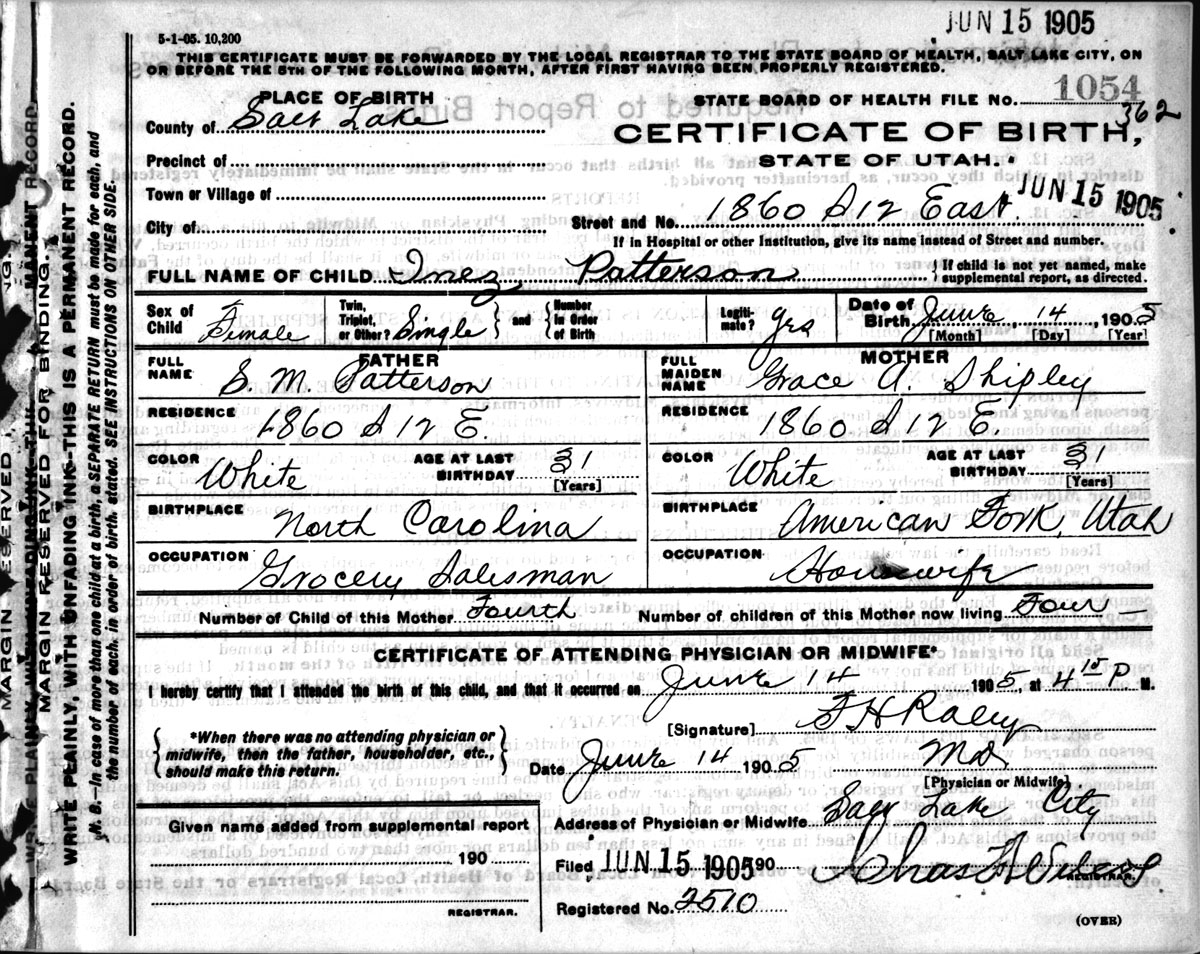 JUN 15 1905
5-1-05. 10,200
THIS CERTIFICATE MUST BE FORWARDED BY THE LOCAL REGISTRAR TO THE STATE BOARD OF HEALTH, SALT LAKE CITY, ON
OR BEFORE THE 5TH OF THE FOLLOWING MONTH, AFTER FIRST HAVING BEEN PROPERLY REGISTERED.
PLACE OF BIRTH
STATE BOARD OF HEALTH FILE NO. 1054
362
County of Salt Lake
CERTIFICATE OF BIRTH,
Precinct of
STATE OF UTAH.
Town or Village of
JUN 15 1905
City of
Street and No 1860 S 12 East
If in Hospital or other Institution, give its name instead of Street and number.
FULL NAME OF CHILD Inez Patterson
If child is not yet named, make
supplemental report, as directed.
Sex of Child Female
Twin, Triplet, or Other? Single and Number in Order of Birth
Legiti-mate? yes
Date of Birth June 14 1905
[Month] [Day] [Year]
FATHER
FULL NAME S. M. Patterson
RESIDENCE 1860 S 12 E.
COLOR White AGE AT LAST BIRTHDAY 31 [Years]
BIRTHPLACE North Carolina
OCCUPATION Grocery Salesman
MOTHER
FULL MAIDEN NAME Grace A. Shipley
RESIDENCE 1860 S 12 E.
COLOR White AGE AT LAST BIRTHDAY 31 [Years]
BIRTHPLACE American Fork, Utah
OCCUPATION Housewife
Number of Child of this Mother Fourth Number of children of this Mother now living Four
CERTIFICATE OF ATTENDING PHYSICIAN OR MIDWIFE*
I hereby certify that I attended the birth of this child, and that it occurred on June 14 1905, at 4 15 P M.
*When there was no attending physician or
midwife, then the father, householder, etc.,
should make this return.
[Signature] F H Raley
Date June 14 1905 MD
[Physician or Midwife]
Address of Physician or Midwife Salt Lake City
Given name added from supplemental report
190
REGISTRAR.
Filed JUN 15 1905 190
REGISTRAR.
Registered No. 2510
(OVER)
MARGIN RESERVED FOR BINDING.
WRITE PLAINLY WITH UNFADING INK—THIS IS A PERMANENT RECORD.
N. B.—In case of more than one child at a birth, a SEPARATE RETURN must be made for each, and
the number of each, in order of birth, stated. SEE INSTRUCTIONS ON OTHER SIDE.